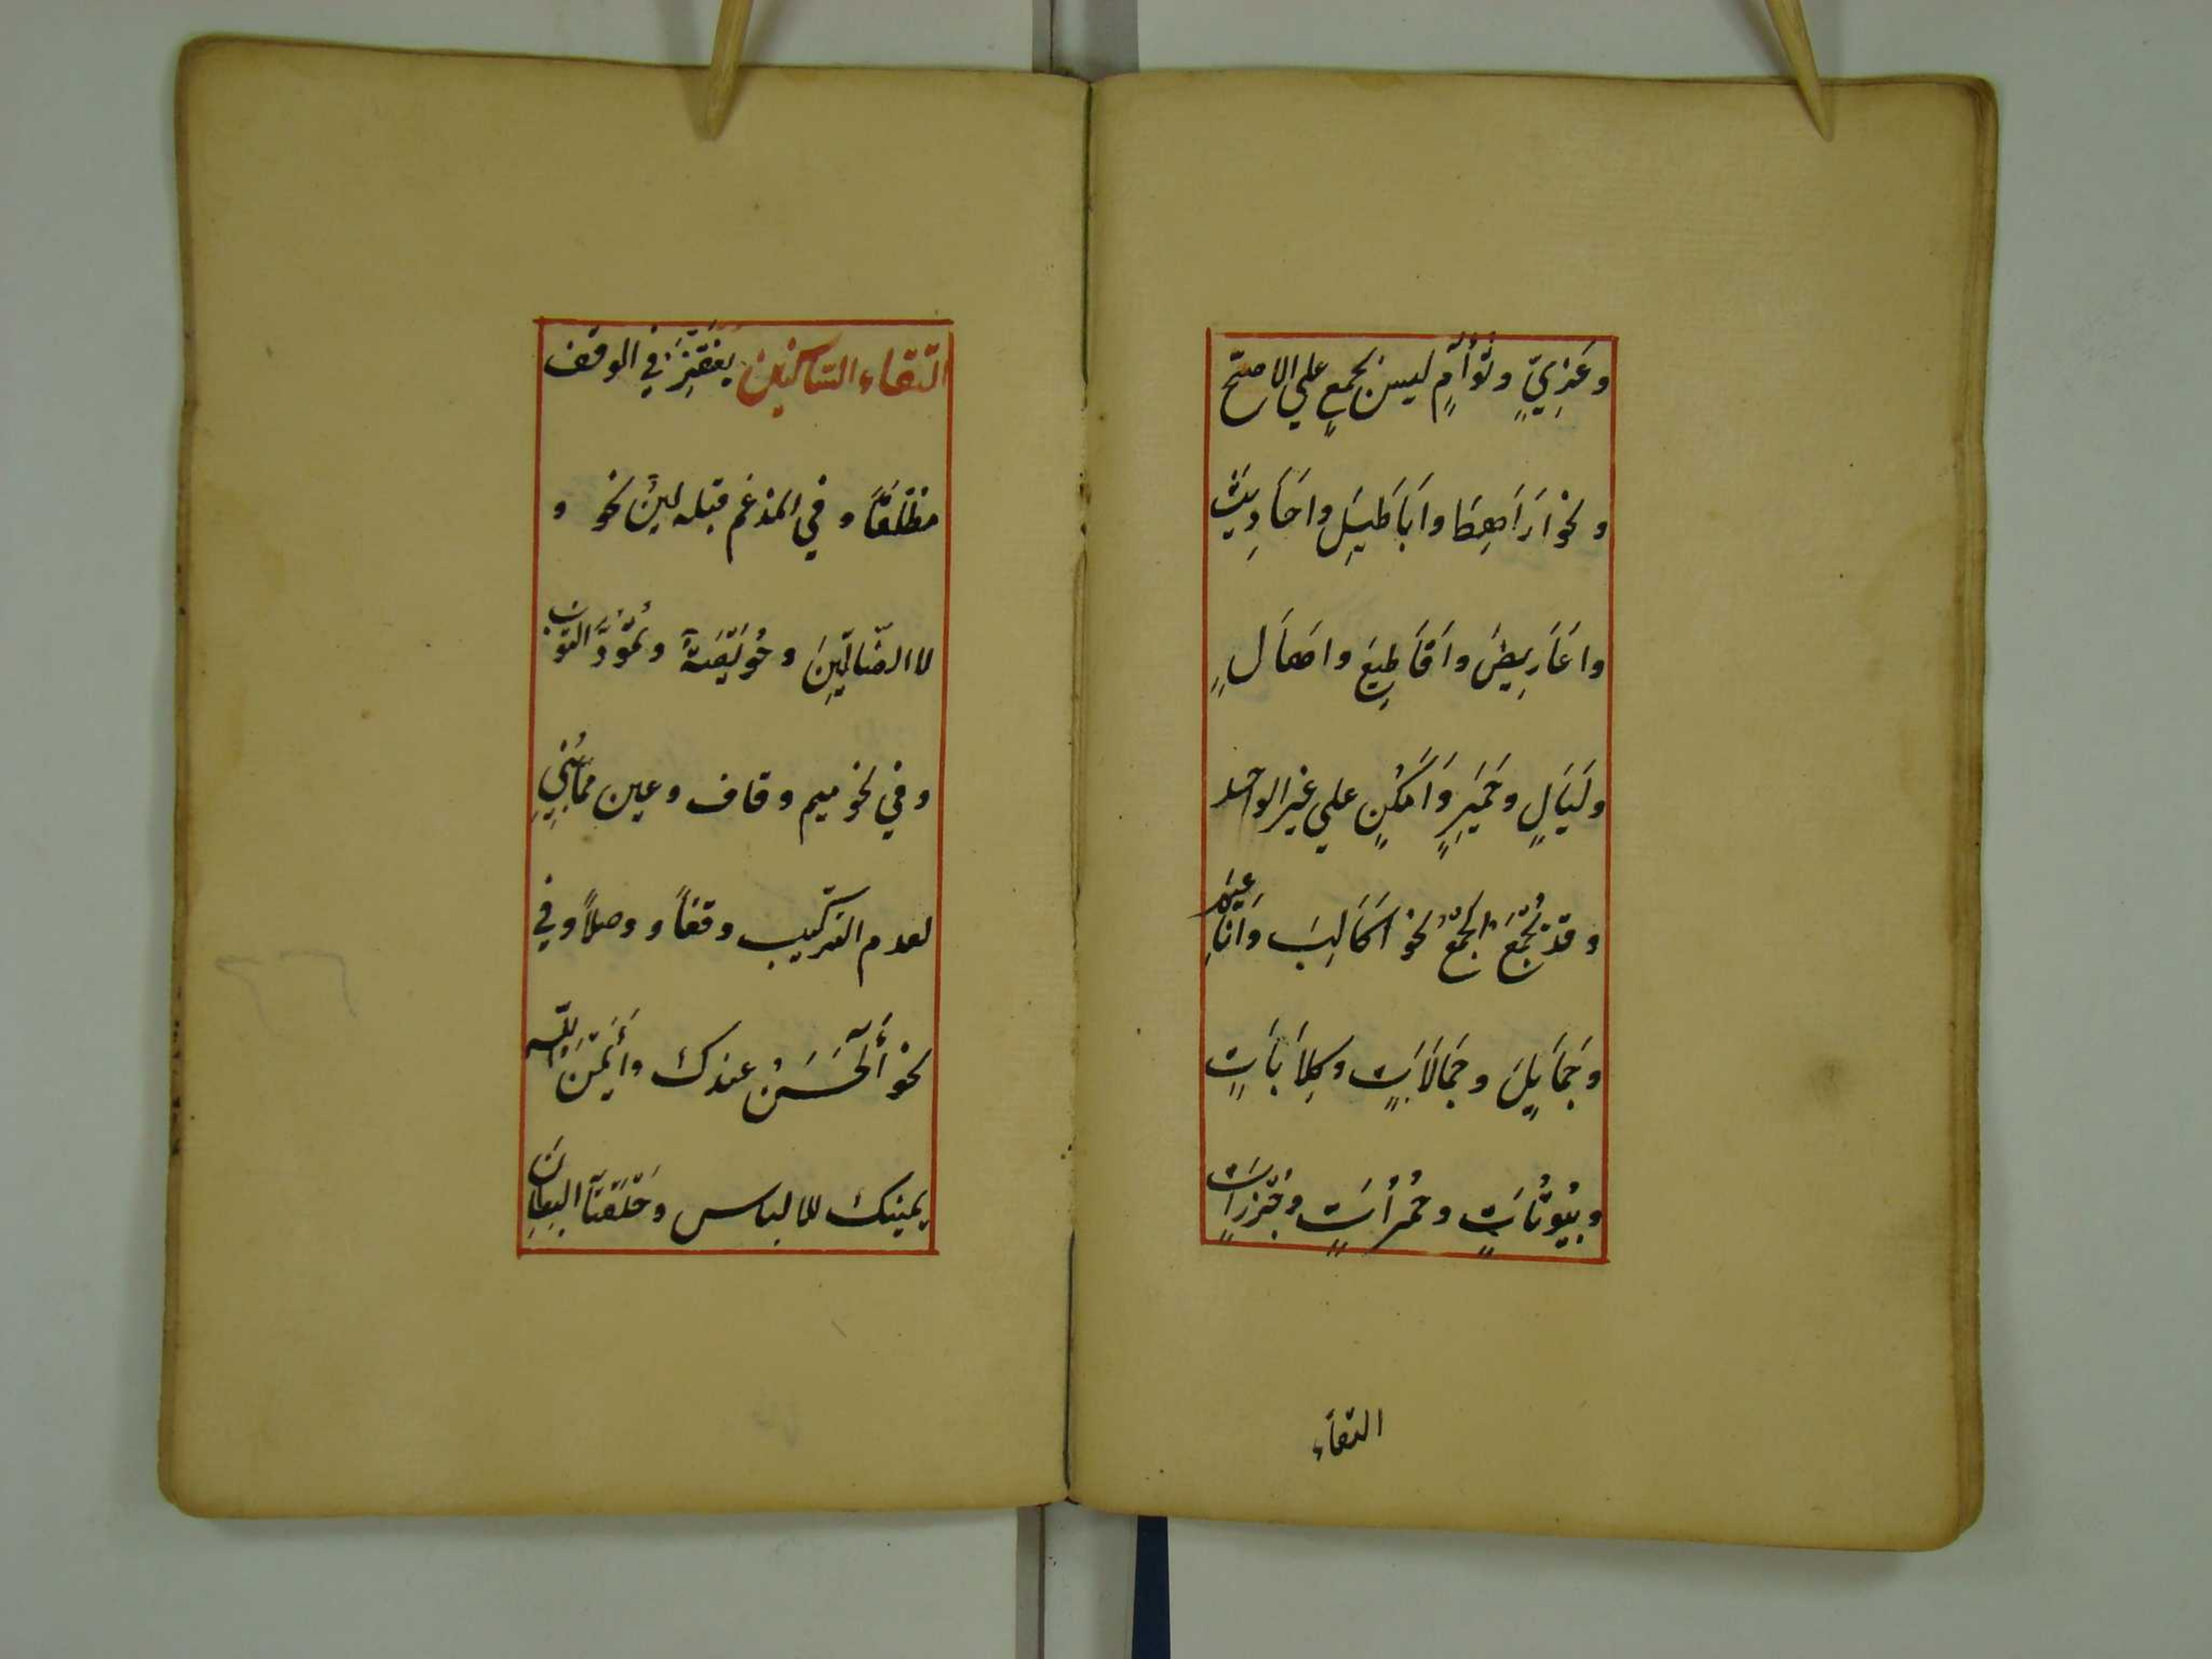 وَغَزِيٍّ وَتُؤَامٍ ليس بجمعٍ علي الاصحّ
ونحوْ اَرَاهِطَ وَاَبَاطِيلَ وَاحَادِيثَ
وَاعَارِيضَ وَاَقَاطِيعَ واَهَالٍ
ولَيَالٍ وحَمِيَرٍ وَاَمْكُنٍ علي غير الواحد
وقدْ يُجْمَعُ الجمْعُ نحوْ اَكَالِبَ وَاَنَاعِيمَ
وَجَمَايِلَ وجَمَالَاتٍ وكِلَابَاتٍ
وبُيُوتَاتٍ وحُمُرَاتٍ وجُزُرَاتٍ
التقاء
التقاء الساكنين يُغْتَفَرُ في الوقف
مطْلَقًا وفي المدْغم قبله لينٌ نحوُ وَ
لا الضَّالِّينَ وَخُوَيْصَّةٌ وتُمُودَّ الثوب
وفي نحو ميم وقاف وعين ممّا بُنِيَ
لعدم التركيب وقفاً ووصلاً وفي
نحو أَلْحَسَنُ عندك وَأَيْمُنُ اللّه
يمينك للالباس وَحَلْقَتَا البِطَانِ